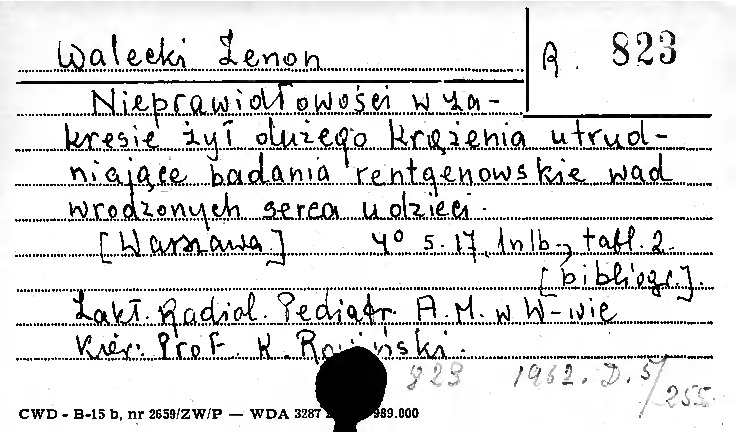 Walecki Zenon
R. 823
Nieprawidłowości w za-
kresie żył dużego krążenia utrud-
niające badania rentgenowskie wad
wrodzonych serca u dzieci.
[Warszawa] 4° s. 17, 1 nlb., tabl. 2.
[bibliogr.].
Zakł. Radiol. Pediatr. A.M. w W-wie
Kier: Prof. K.
823 1962. D. 5/255
CWD - B-15 b, nr 2659/ZW/P — WDA 3287 989.000